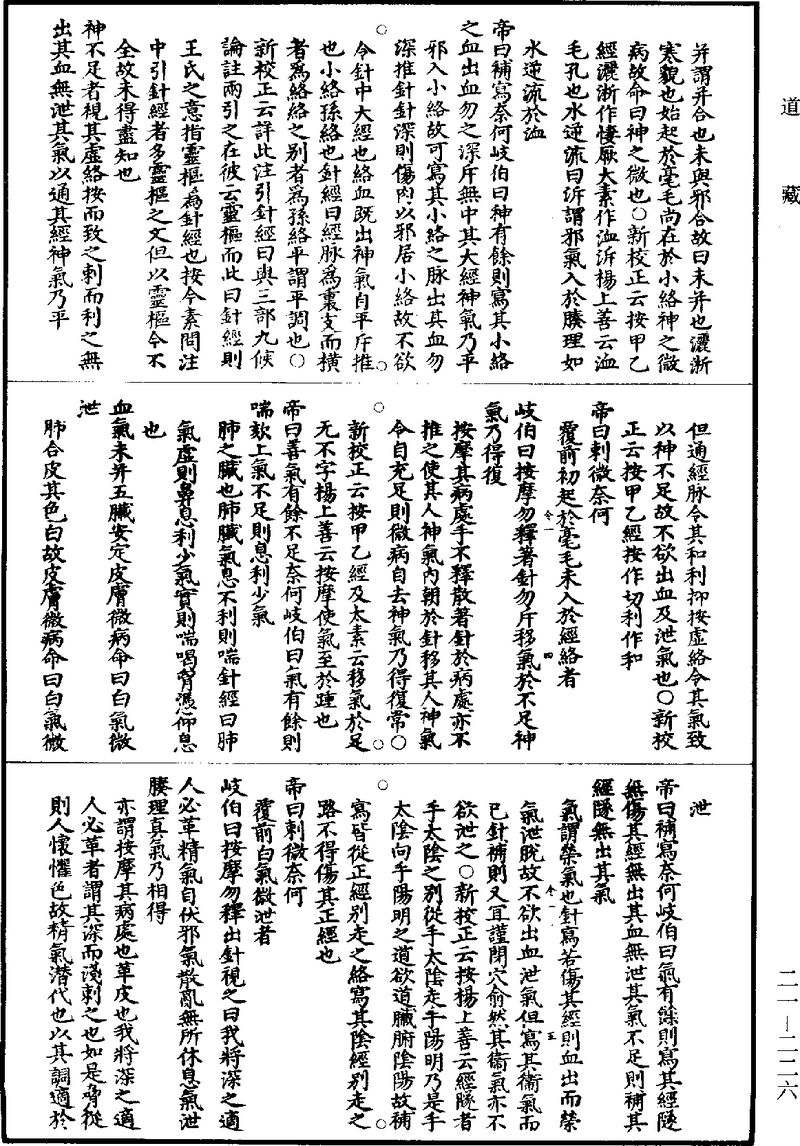 道藏
并謂并合也未與邪合故曰未并也灑淅
寒貌也始起於毫毛尚在於小絡神之微
病故命曰神之微也○新校正云按甲乙
經灑淅作悽厥太素作洫泝楊上善云洫
毛孔也水逆流曰泝謂邪氣入於腠理如
水逆流於洫
帝曰補寫奈何岐伯曰神有餘則寫其小絡
之血出血勿之深斥無中其大經神氣乃平
邪入小絡故可寫其小絡之脉出其血勿
深推針針深則傷肉以邪居小絡故不欲
令針中大經也絡血既出神氣自平斥推
也小絡孫絡也針經曰經脉爲裏支而橫
者爲絡絡之別者爲孫絡平謂平調也○
新校正云詳此注引針經曰與三部九候
論註兩引之在彼云靈樞而此曰針經則
王氏之意指靈樞爲針經也按今素問注
中引針經者多靈樞之文但以靈樞今不
全故未得盡知也
神不足者視其虛絡按而致之刺而利之無
出其血無泄其氣以通其經神氣乃平
但通經脉令其和利抑按虛絡令其氣致
以神不足故不欲出血及泄氣也○新校
正云按甲乙經按作切利作和
帝曰刺微奈何
覆前初起於毫毛未入於經絡者
岐伯曰按摩勿釋著針勿斥移氣於不足神
氣乃得復
按摩其病處手不釋散著針於病處亦不
推之使其人神氣內朝於針移其人神氣
令自充足則微病自去神氣乃得復常○
新校正云按甲乙經及太素云移氣於足
无不字楊上善云按摩使氣至於踵也
帝曰善氣有餘不足奈何岐伯曰氣有餘則
喘欬上氣不足則息利少氣
肺之臟也肺臟氣息不利則喘針經曰肺
氣虛則鼻息利少氣實則喘喝胷憑仰息
也
血氣未并五臟安定皮膚微病命曰白氣微
泄
肺合皮其色白故皮膚微病命曰白氣微
泄
帝曰補寫奈何岐伯曰氣有餘則寫其經隧
無傷其經無出其血無泄其氣不足則補其
經隧無出其氣
氣謂榮氣也針寫若傷其經則血出而榮
氣泄脫故不欲出血泄氣但寫其衞氣而
已針補則又宜謹閉穴俞然其衞氣亦不
欲泄之○新校正云按楊上善云經隧者
手太陰之別從手太陰走手陽明乃是手
太陰向手陽明之道欲道臟腑陰陽故補
寫皆從正經別走之絡寫其陰經別走之
路不得傷其正經也
帝曰刺微奈何
覆前白氣微泄者
岐伯曰按摩勿釋出針視之曰我將深之適
人必革精氣自伏邪氣散亂無所休息氣泄
腠理真氣乃相得
亦謂按摩其病處也革皮也我將深之適
人必革者謂其深而淺刺之也如是脅從
則人懷懼色故精氣潛伏也以其調適於
二一—二二六